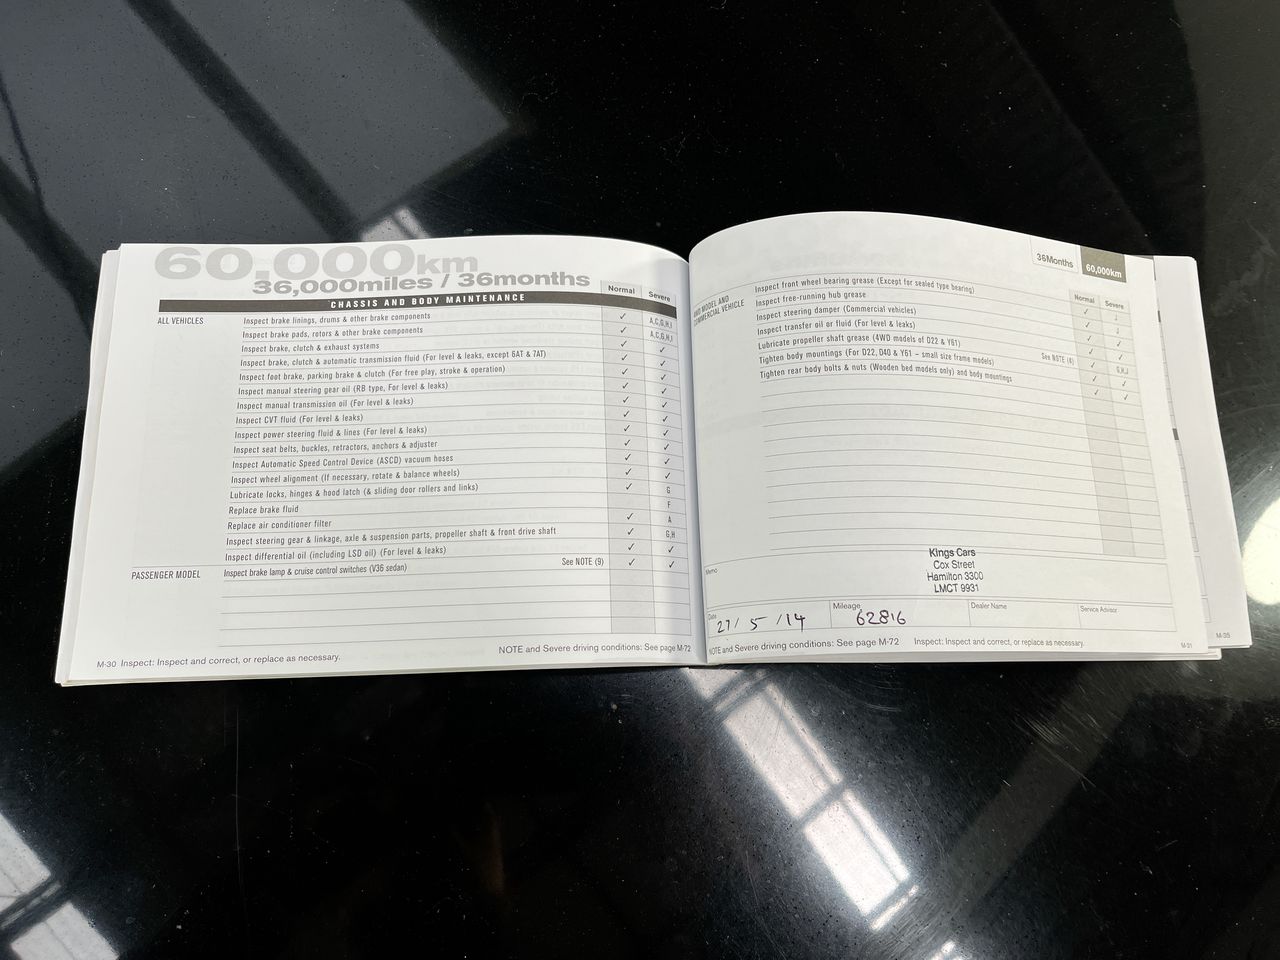 60,000km
36,000miles / 36months
CHASSIS AND BODY MAINTENANCE
Normal Severe
ALL VEHICLES
Inspect brake linings, drums & other brake components ✓ A,C,G,H,I
Inspect brake pads, rotors & other brake components ✓ A,C,G,H,I
Inspect brake, clutch & exhaust systems ✓ ✓
Inspect brake, clutch & automatic transmission fluid (For level & leaks, except 6AT & 7AT) ✓ ✓
Inspect foot brake, parking brake & clutch (For free play, stroke & operation) ✓ ✓
Inspect manual steering gear oil (RB type, For level & leaks) ✓ ✓
Inspect manual transmission oil (For level & leaks) ✓ ✓
Inspect CVT fluid (For level & leaks) ✓ ✓
Inspect power steering fluid & lines (For level & leaks) ✓ ✓
Inspect seat belts, buckles, retractors, anchors & adjuster ✓ ✓
Inspect Automatic Speed Control Device (ASCD) vacuum hoses ✓ ✓
Inspect wheel alignment (If necessary, rotate & balance wheels) ✓ ✓
Lubricate locks, hinges & hood latch (& sliding door rollers and links) ✓ G
Replace brake fluid F
Replace air conditioner filter ✓ A
Inspect steering gear & linkage, axle & suspension parts, propeller shaft & front drive shaft ✓ G,H
Inspect differential oil (including LSD oil) (For level & leaks) ✓ ✓
PASSENGER MODEL Inspect brake lamp & cruise control switches (V36 sedan) See NOTE (9) ✓ ✓
M-30 Inspect: Inspect and correct, or replace as necessary.
NOTE and Severe driving conditions: See page M-72
36Months 60,000km
Normal Severe
MODEL AND
COMMERCIAL VEHICLE
Inspect front wheel bearing grease (Except for sealed type bearing) ✓ J
Inspect free-running hub grease ✓ J
Inspect steering damper (Commercial vehicles) ✓ ✓
Inspect transfer oil or fluid (For level & leaks) ✓ ✓
Lubricate propeller shaft grease (4WD models of D22 & Y61) See NOTE (4) ✓ G,H,J
Tighten body mountings (For D22, D40 & Y61 – small size frame models) ✓ ✓
Tighten rear body bolts & nuts (Wooden bed models only) and body mountings ✓ ✓
Memo
Kings Cars
Cox Street
Hamilton 3300
LMCT 9931
Date 27/5/14
Mileage 62816
Dealer Name
Service Advisor
NOTE and Severe driving conditions: See page M-72 Inspect: Inspect and correct, or replace as necessary.
M-31
M-35